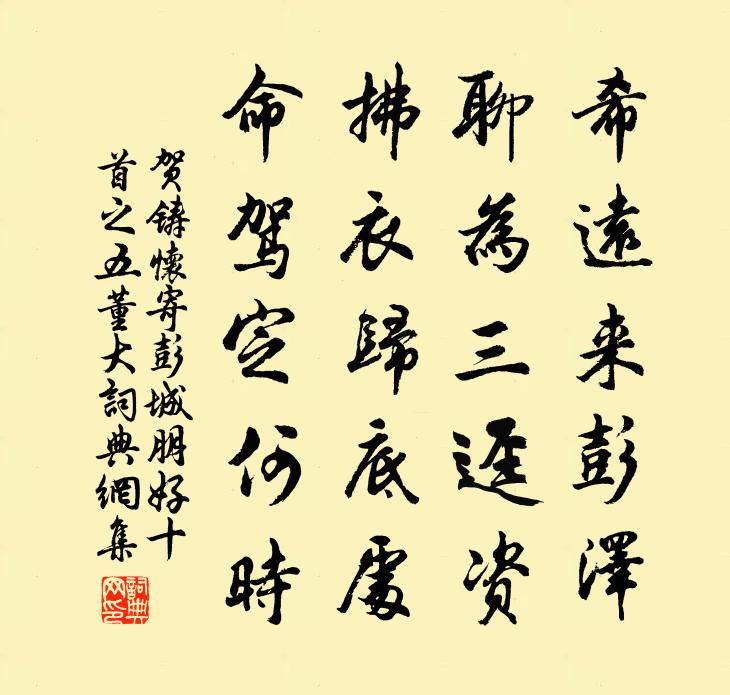 希遠来彭澤
聊為三逕资
拂衣歸底處
命驾定何時
贺鑄懷寄彭城朋好十
首之五董大詞典網集
詞典
网印